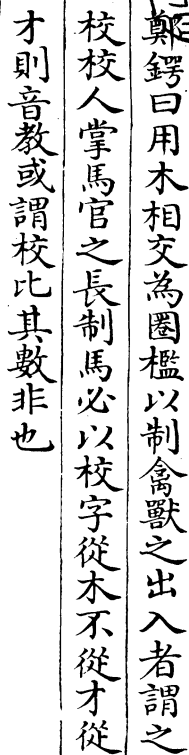 鄭鍔曰用木相交為圈檻以制禽獸之出入者謂之
校校人掌馬官之長制馬必以校字從木不從才從
才則音教或謂校比其數非也